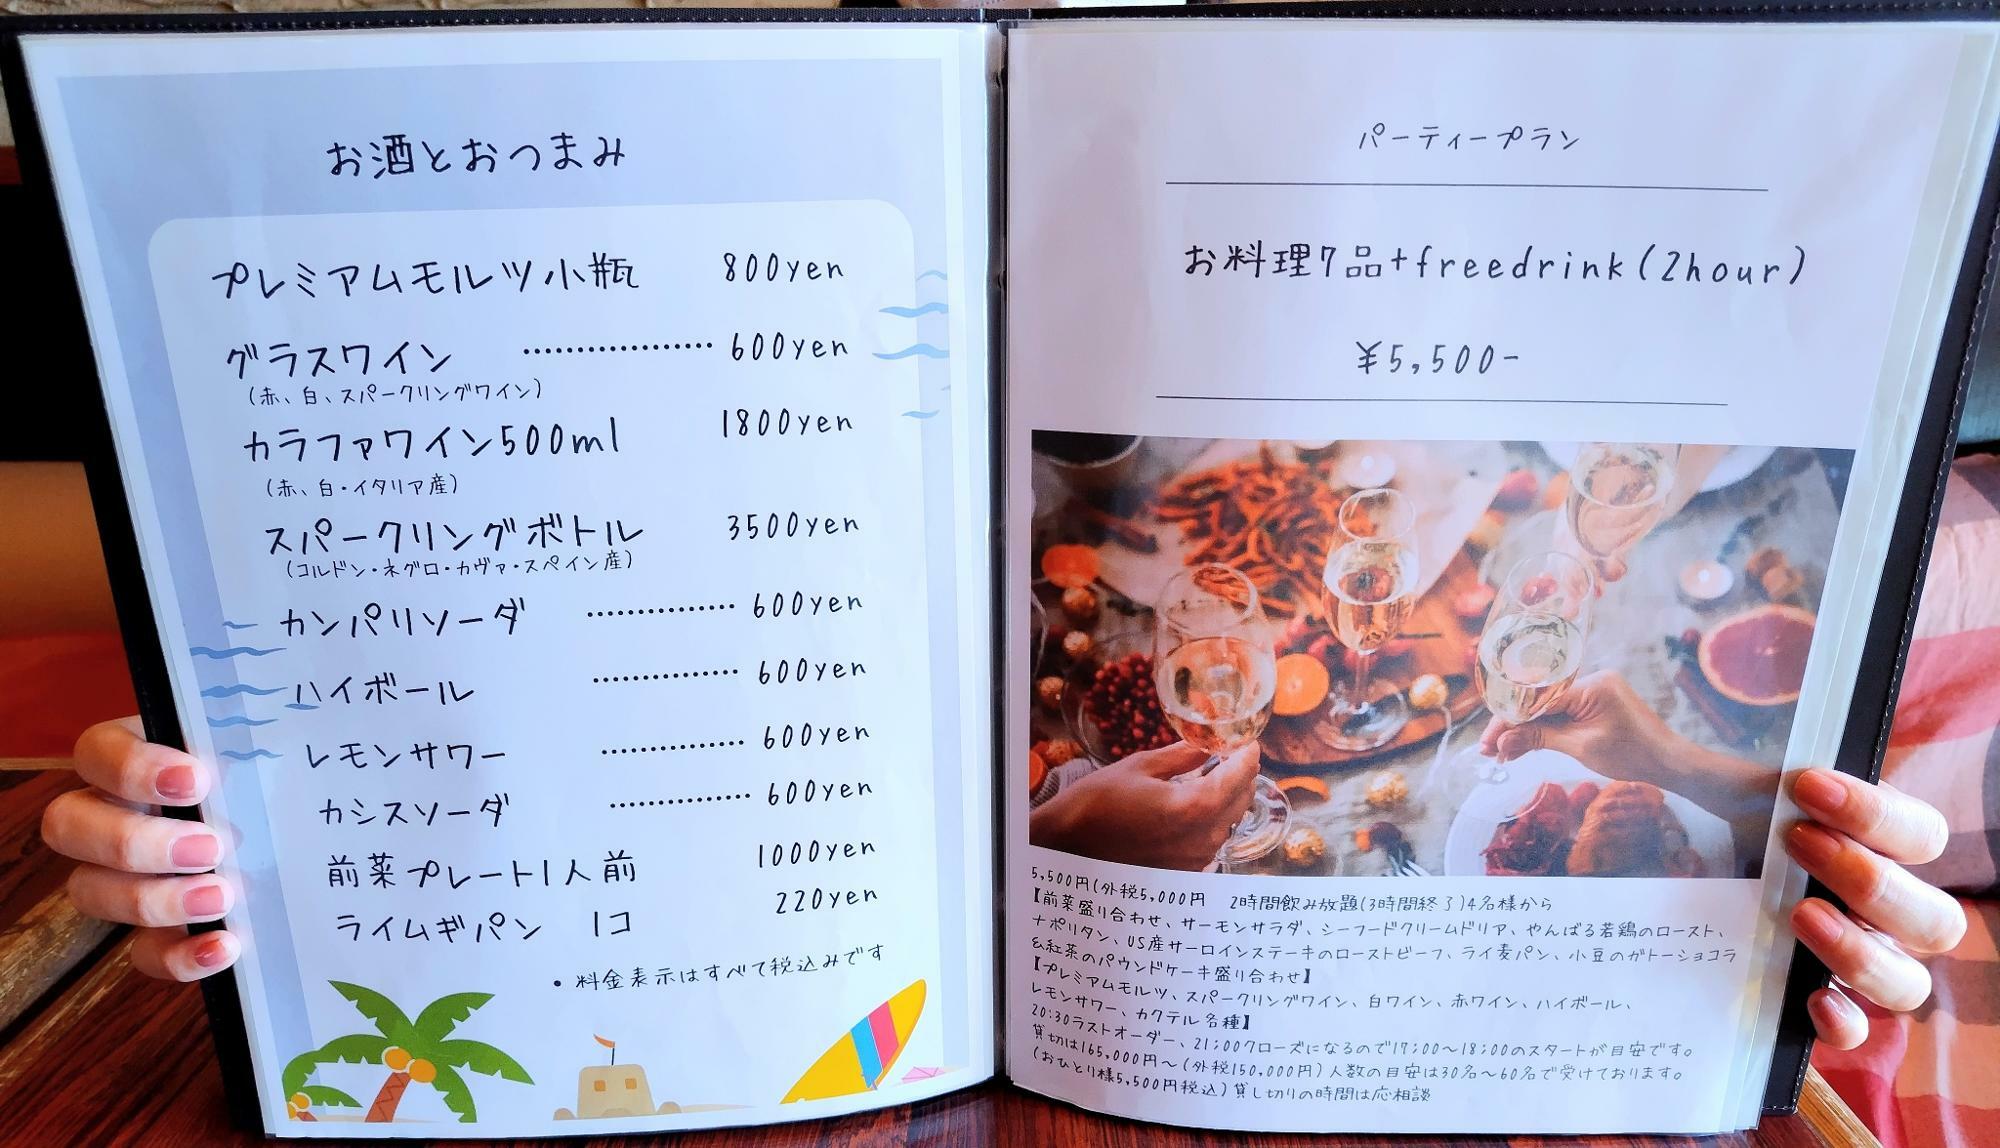 お酒とおつまみ
プレミアムモルツ小瓶 800yen
グラスワイン ………………… 600yen
(赤、白、スパークリングワイン)
カラファワイン500ml 1800yen
(赤、白・イタリア産)
スパークリングボトル 3500yen
(コルドン・ネグロ・カヴァ・スペイン産)
カンパリソーダ …………… 600yen
ハイボール …………… 600yen
レモンサワー …………… 600yen
カシスソーダ …………… 600yen
前菜プレート1人前 1000yen
ライムギパン 1コ 220yen
・料金表示はすべて税込みです
パーティープラン
お料理7品+freedrink(2hour)
¥5,500-
5,500円(外税5,000円 2時間飲み放題(3時間終了)4名様から
【前菜盛り合わせ、サーモンサラダ、シーフードクリームドリア、やんばる若鶏のロースト、
ナポリタン、US産サーロインステーキのローストビーフ、ライ麦パン、小豆のガトーショコラ
&紅茶のパウンドケーキ盛り合わせ】
【プレミアムモルツ、スパークリングワイン、白ワイン、赤ワイン、ハイボール、
レモンサワー、カクテル各種】
20:30ラストオーダー、21:00クローズになるので17:00~18:00のスタートが目安です。
貸切は165,000円~(外税150,000円)人数の目安は30名~60名で受けております。
(おひとり様5,500円税込)貸し切りの時間は応相談